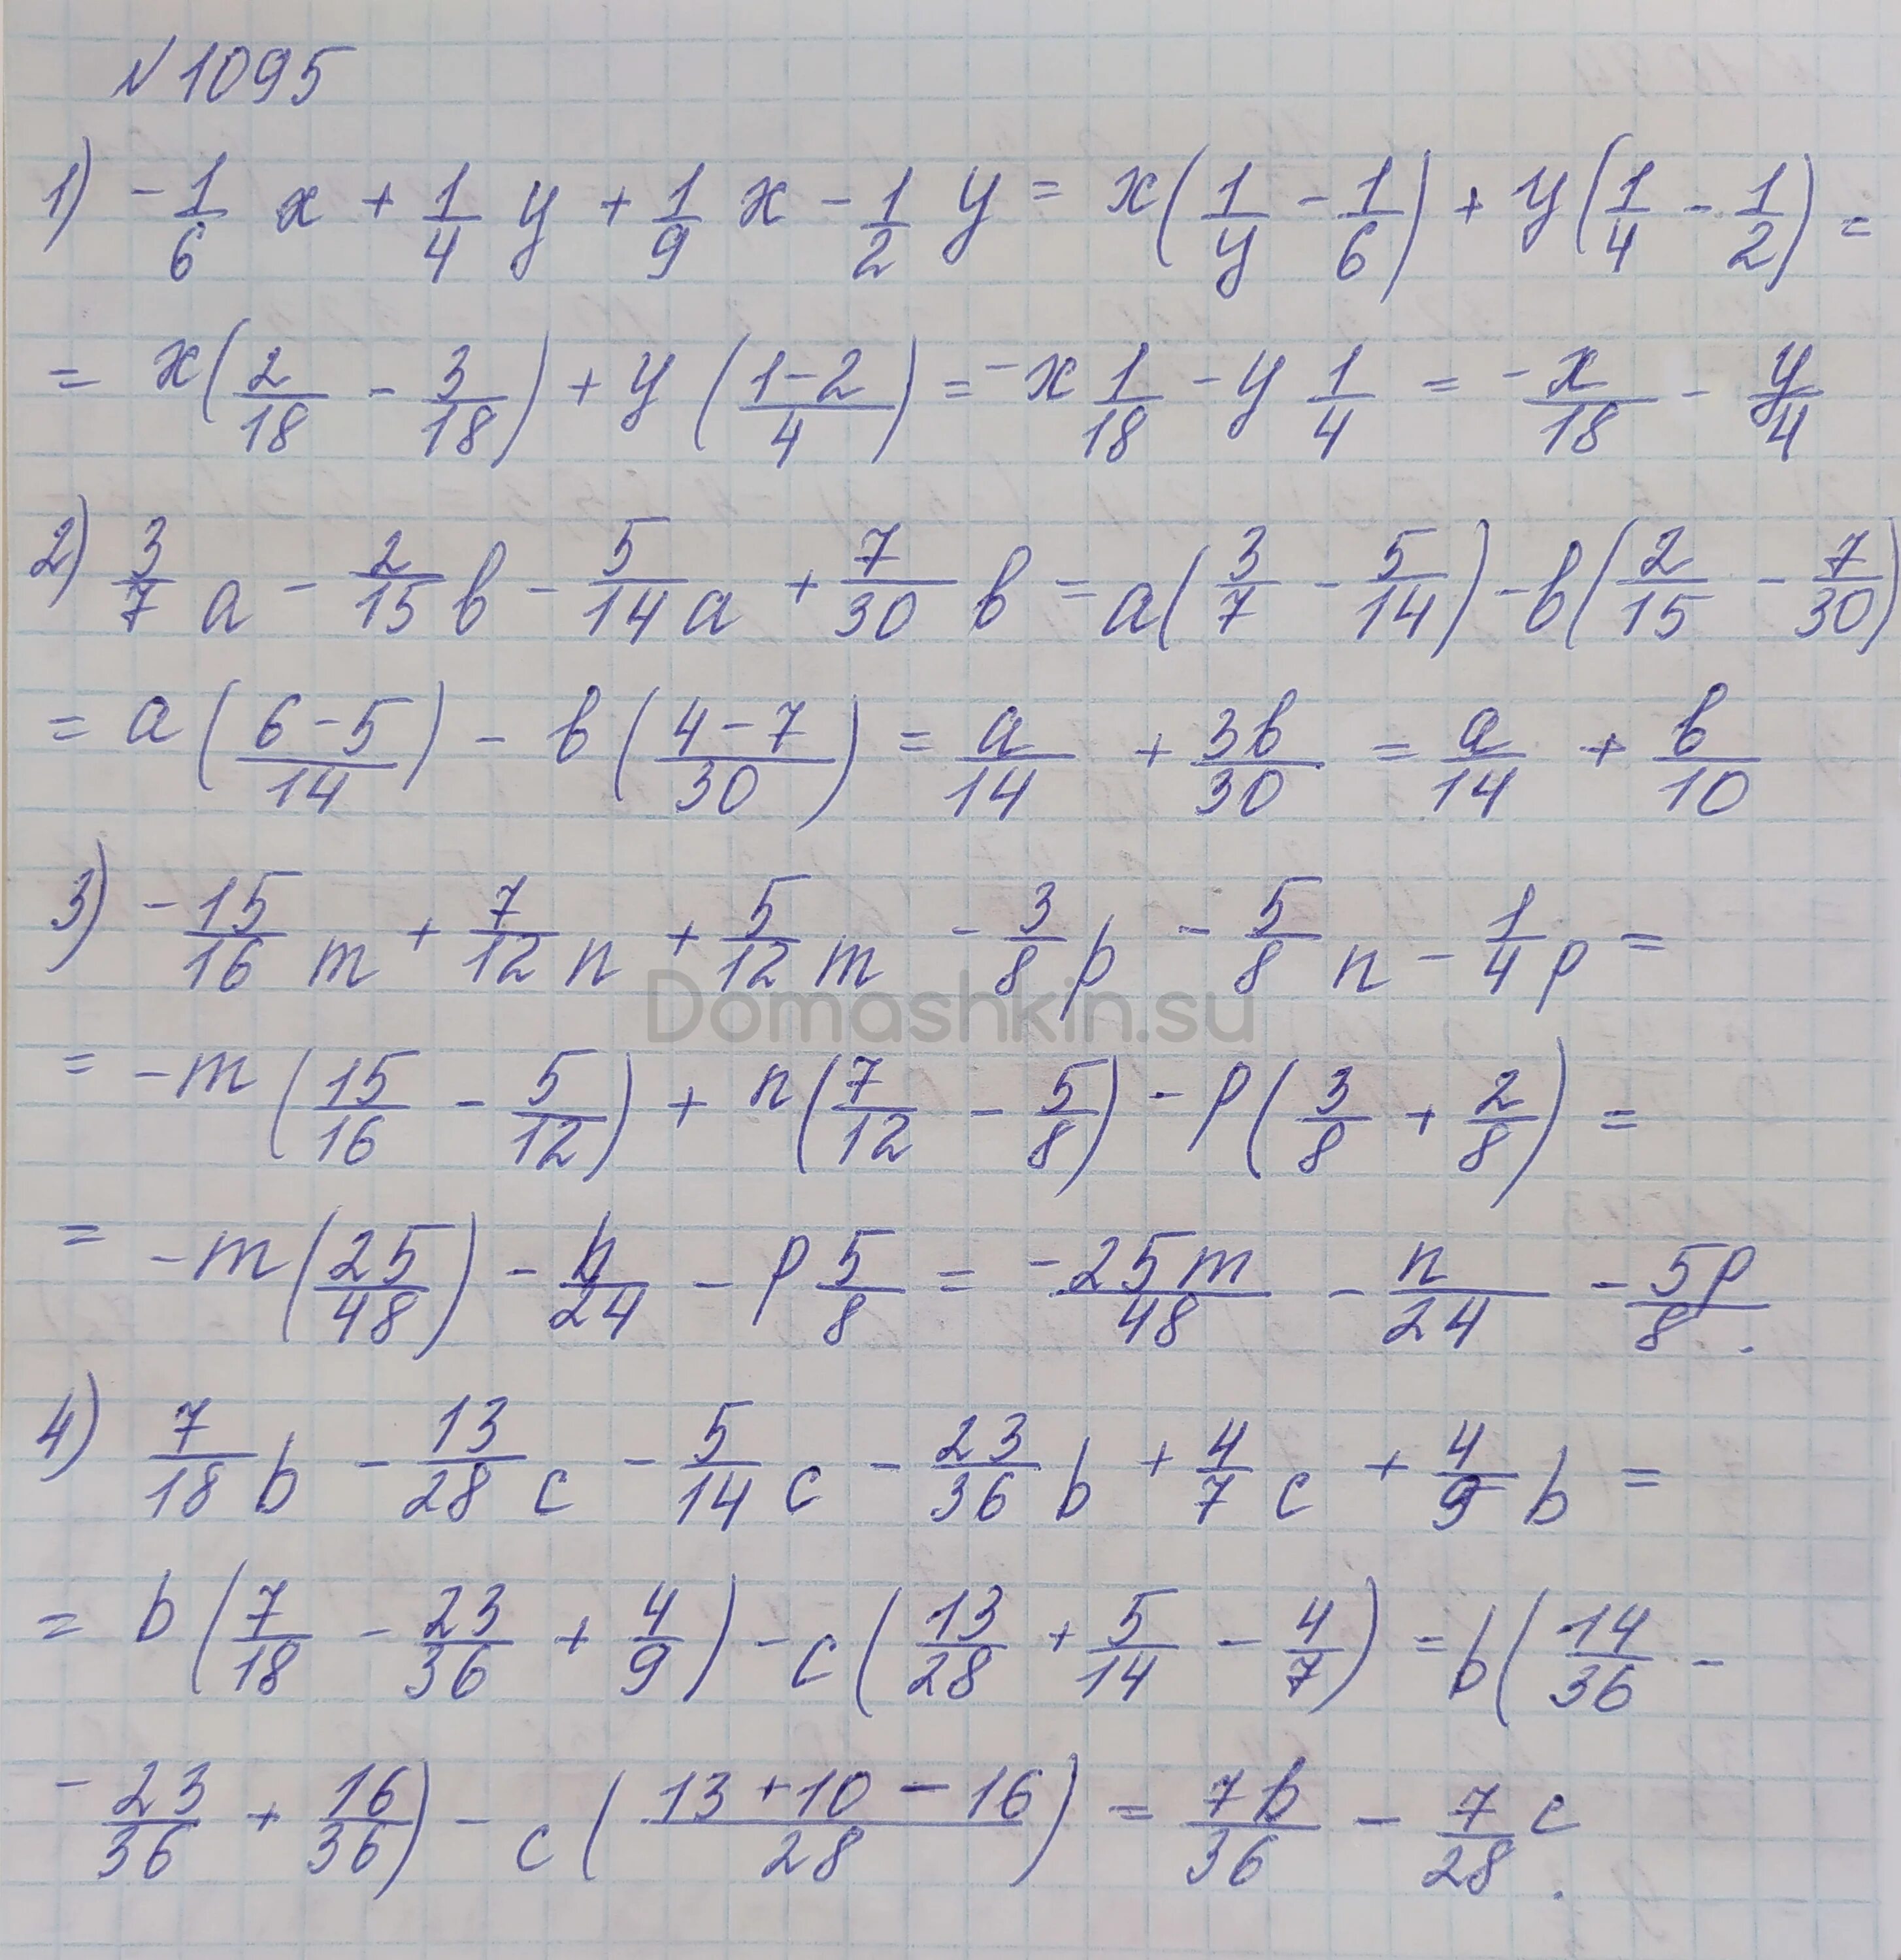 N 1095
1) -1/6 x + 1/4 y + 1/9 x - 1/2 y = x(1/y - 1/6) + y(1/4 - 1/2) =
= x(2/18 - 3/18) + y((1-2)/4) = -x 1/18 - y 1/4 = -x/18 - y/4
2) 3/7 a - 2/15 b - 5/14 a + 7/30 b = a(3/7 - 5/14) - b(2/15 - 7/30)
= a((6-5)/14) - b((4-7)/30) = a/14 + 3b/30 = a/14 + b/10
3) -15/16 m + 7/12 n + 5/12 m - 3/8 p - 5/8 n - 1/4 p =
Domashkin.su
= -m(15/16 - 5/12) + n(7/12 - 5/8) - p(3/8 + 2/8) =
= -m(25/48) - n/24 - p 5/8 = -25m/48 - n/24 - 5p/8.
4) 7/18 b - 13/28 c - 5/14 c - 23/36 b + 4/7 c + 4/9 b =
= b(7/18 - 23/36 + 4/9) - c(13/28 + 5/14 - 4/7) = b(14/36 -
- 23/36 + 16/36) - c((13+10-16)/28) = 7b/36 - 7/28 c.